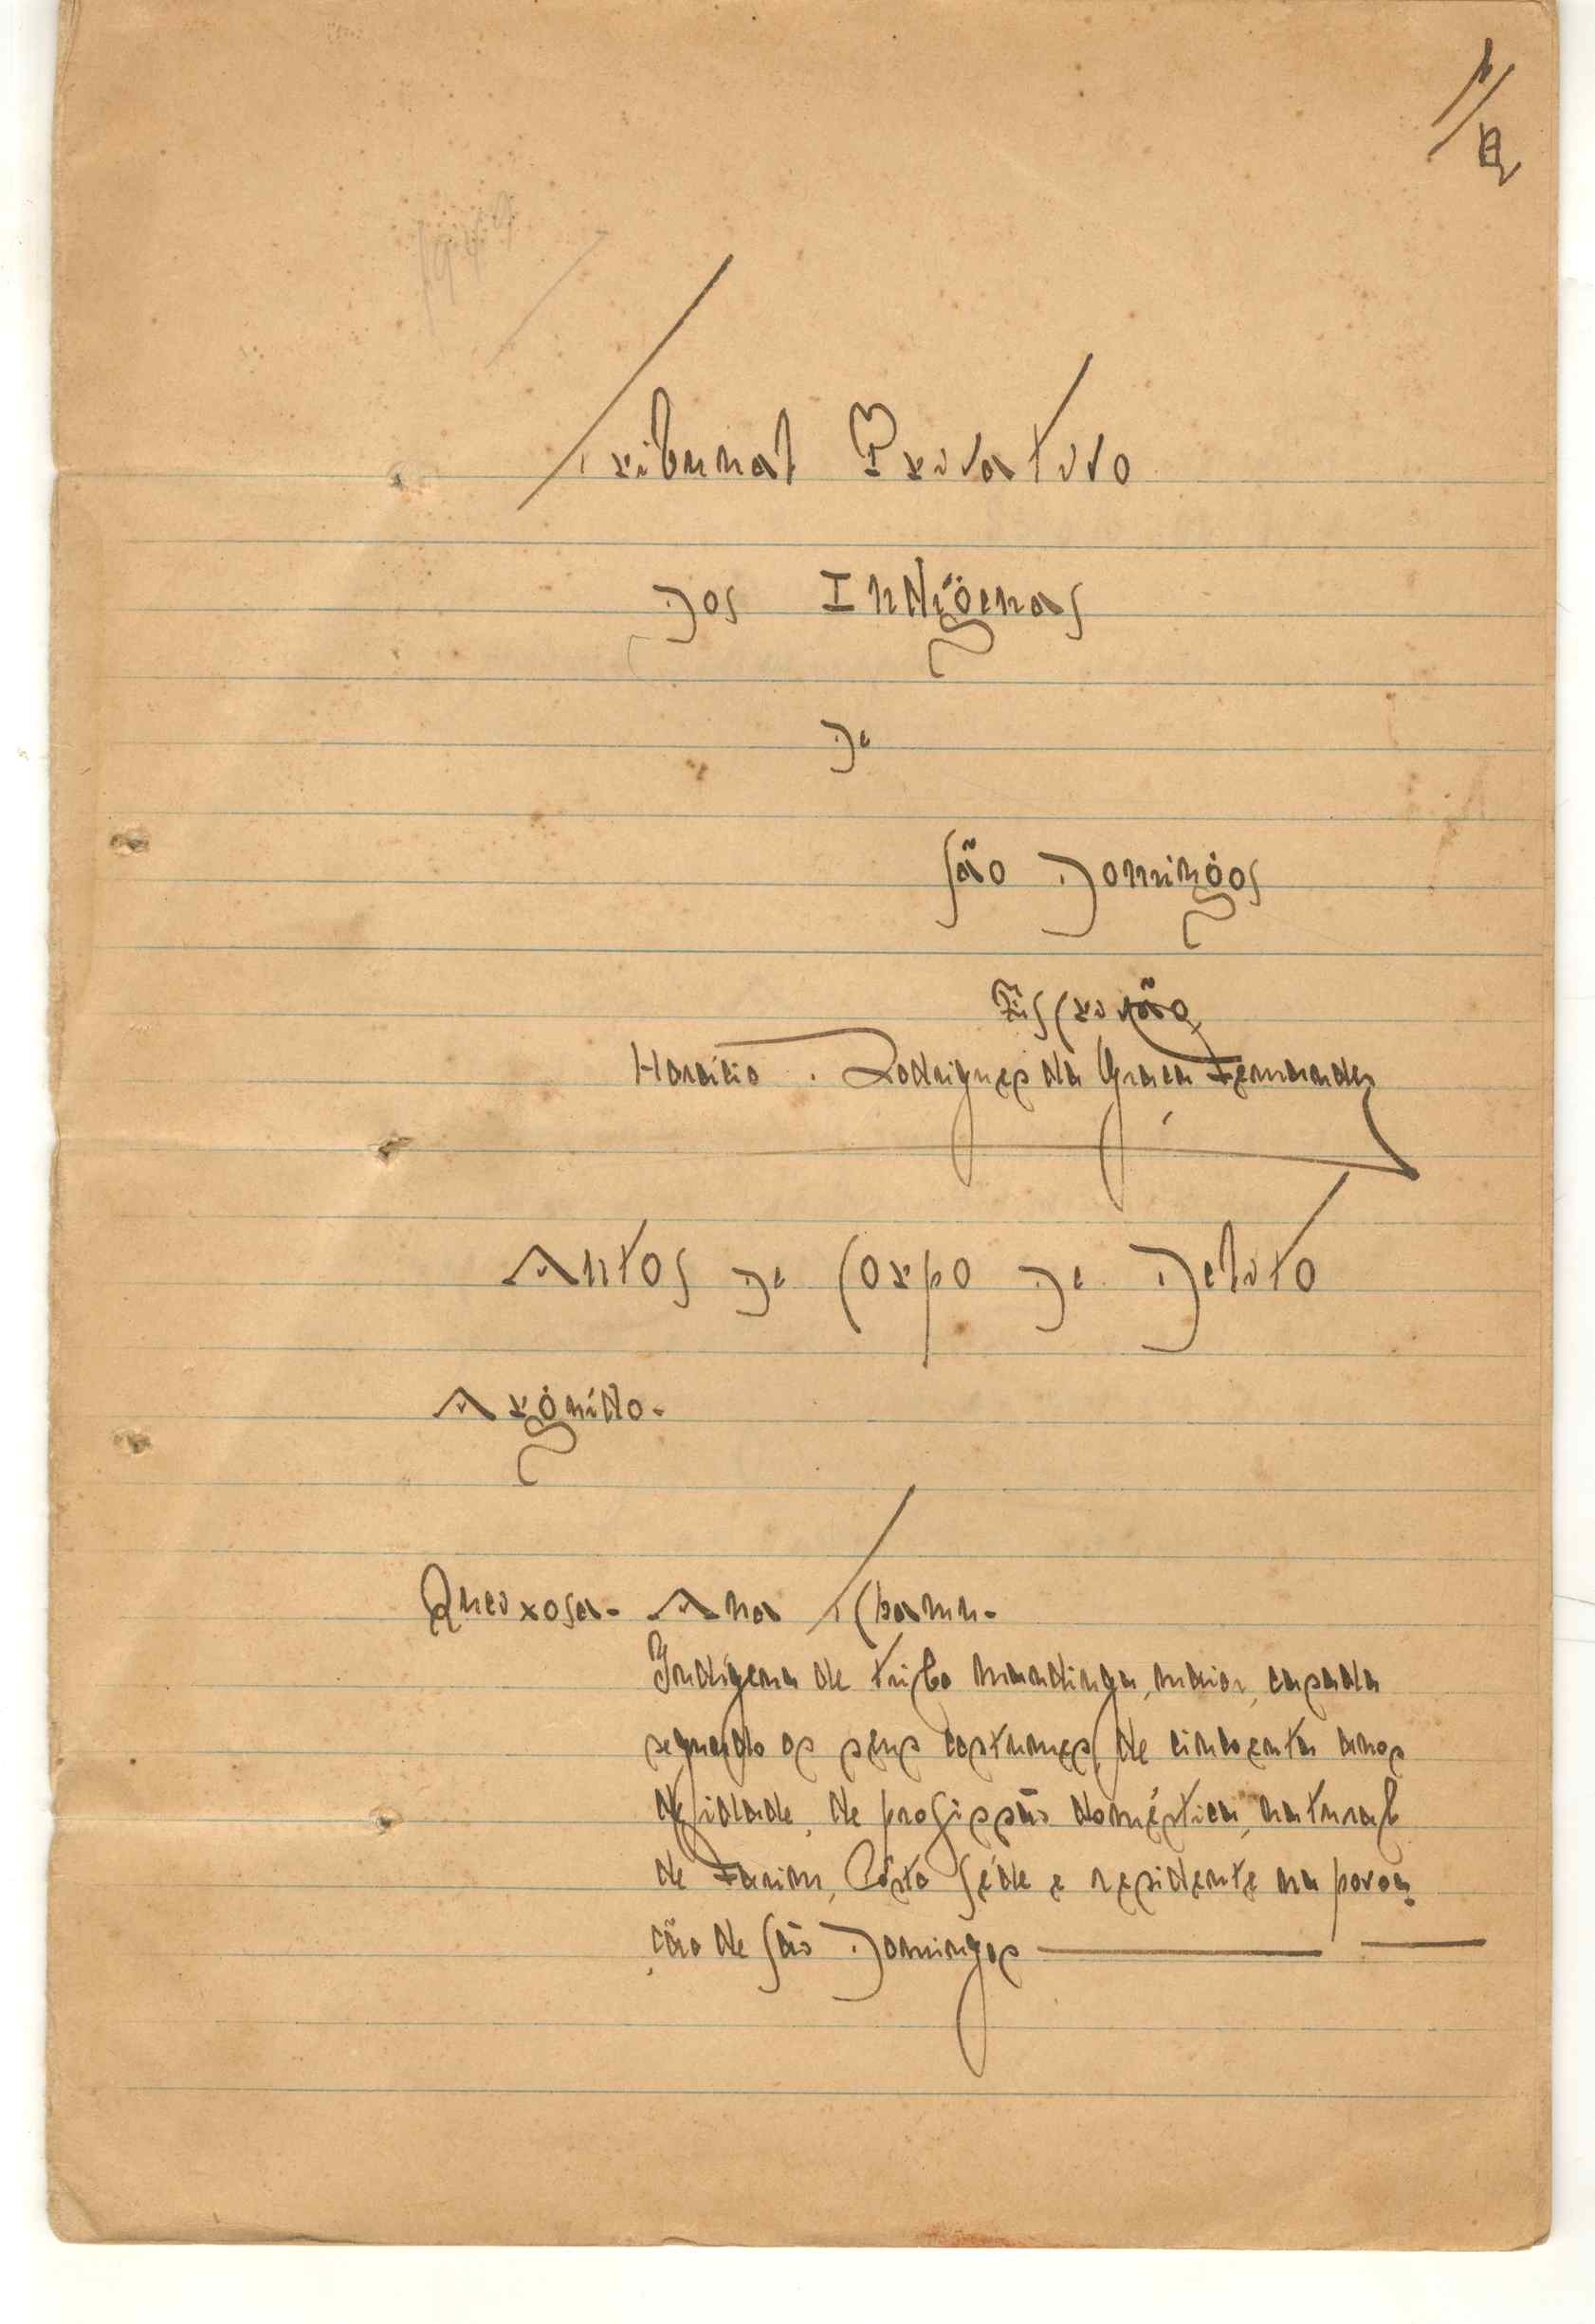 1
Tribunal Privativo
Dos Indígenas
De
São Domingos
Escrivão
Horácio Rodrigues da Graça Fernandes
Autos De Corpo De Delito
Arguido-
Queixosa- Ana Tchamu-
Indígena de tribo mandinga, maior, casada
segundo os seus costumes, de cincoenta anos
de idade, de profissão doméstica, natural
de Farim, Pôsto Séde e residente na povoa
ção de São Domingos